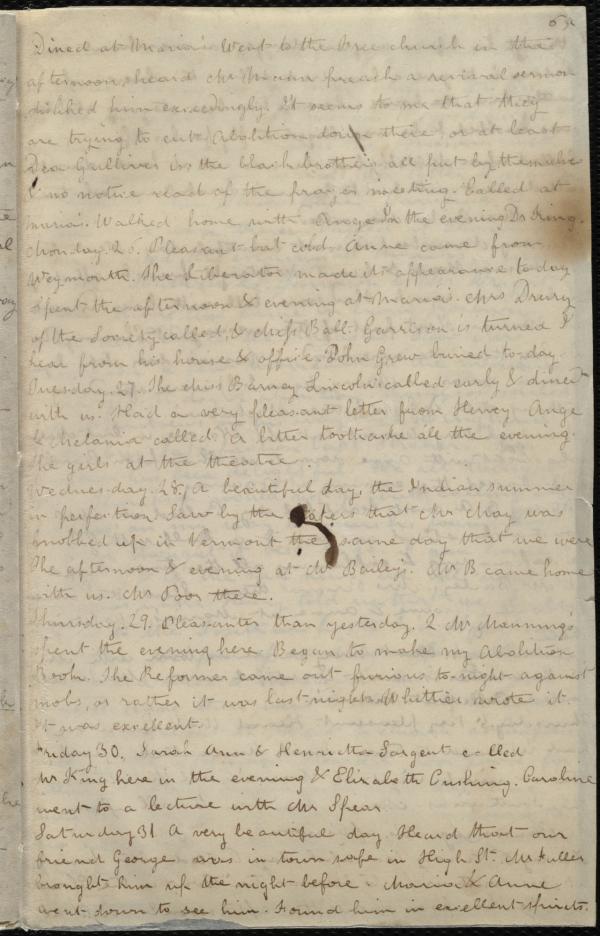 Dined at Maria's Went to the Free church in the
afternoon, heard Mr preach a revival sermon
disliked him exceedingly. It seems to me that they
are trying to cut Abolition down there or at least
Dea Gulliver is. the black brothers all put by themselves
& no notice read of the prayer meeting. Called at
Maria's. Walked home with Ange In the evening Dr King.
Monday. 26. Pleasant but cold. Anne came from
Weymouth. The Liberator made its appearance to day
Spent the afternoon & evening at Maria's. Mrs Drury
of the Society called, & Miss Ball. Garrison is turned I
hear from his house & office. John Grew buried to-day.
Tuesday. 27. The Miss Barney Lincoln's called early & dined
with us. Had a very pleasant letter from Henry Ange
& Melania called. A bitter toothache all the evening.
The girls at the theatre.
Wednesday. 28. A beautiful day, the Indian summer
in perfection. Saw by the papers that Mr May was
mobbed up in Vermont the same day that we were
The afternoon & evening at Mr Bailey's. Mr B came home
with us. Mr Poor there.
Thursday. 29. Pleasanter than yesterday. 2 Mr Manning's
spent the evening here Began to make my Abolition
Book. The Reformer came out furious to-night against
mobs, or rather it was last night. Whittier wrote it.
It was excellent.
Friday 30. Sarah Ann & Henrietta Sargent called
Mr King here in the evening & Elizabeth Cushing. Caroline
went to a lecture with Mr Spear
Saturday 31 A very beautiful day Heard that our
friend George was in town safe in High St. Mr Fuller
brought him up the night before. Maria & Anne
went down to see him. Found him in excellent spirits.